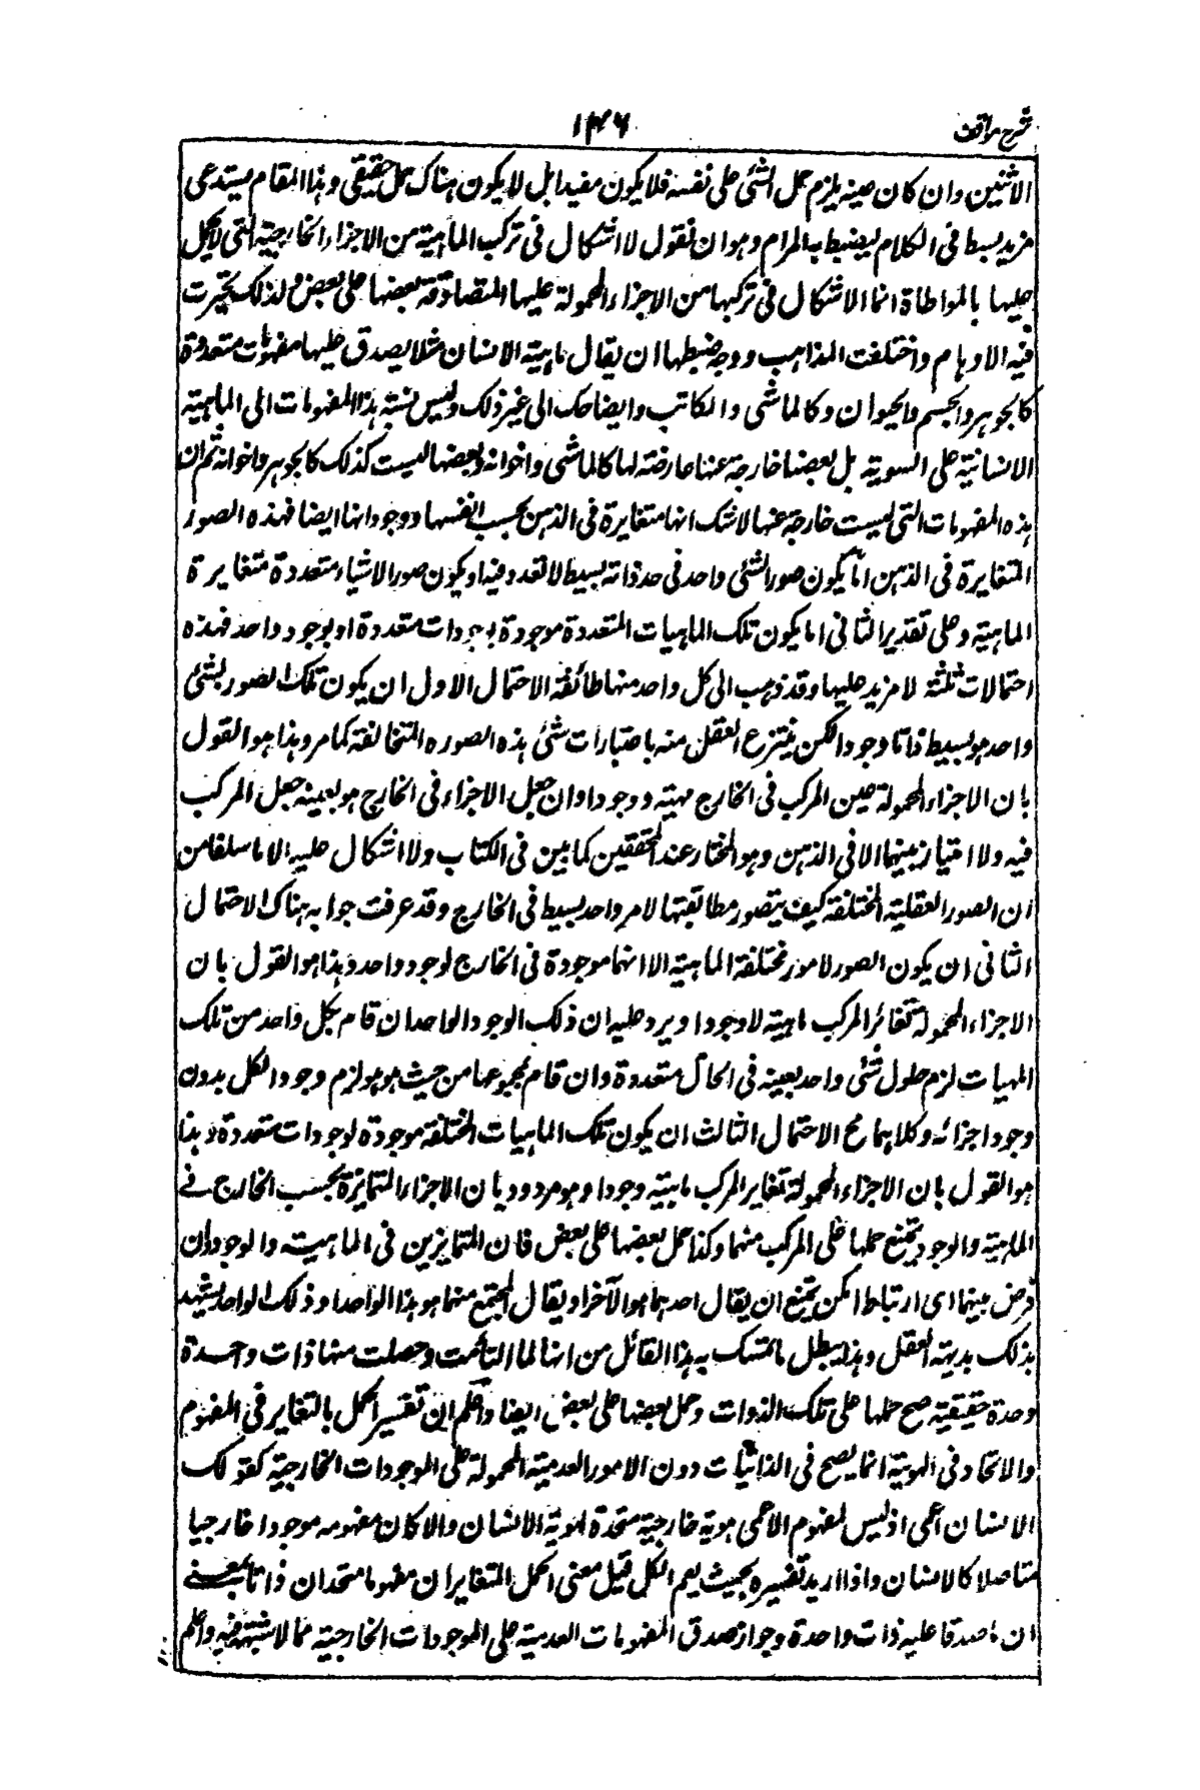 شرح مواقف
۱۴۶
الاثنين وان كان عينه يلزم حمل الشئ على نفسه فلا يكون مفيدا بل لا يكون هناك حمل حقيقى وهذا المقام يستدعى
مزيد بسط فى الكلام لينضبط به المرام وهو ان نقول لا اشكال فى تركب الماهية من الاجزاء الخارجية التى لا تحمل
عليها بالمواطاة انما الاشكال فى تركبها من الاجزاء المحمولة عليها المتصادقة بعضها على بعض ولذلك تحيرت
فيه الاوهام واختلفت المذاهب ووجه ضبطها ان يقال ماهية الانسان مثلا يصدق عليها مفهومات متعددة
كالجوهر والجسم والحيوان وكالماشى والكاتب والضاحك الى غير ذلك وليس نسبة هذه المفهومات الى الماهية
الانسانية على السوية بل بعضها خارجة عنها عارضة لها كالماشى واخوانه وبعضها ليست كذلك كالجوهر واخوانه ثم ان
هذه المفهومات التى ليست خارجة عنها لا شك انها متغايرة فى الذهن بحسب انفسها ووجوداتها ايضا فهذه الصور
المتغايرة فى الذهن اما يكون صور الشئ واحد فى حد ذاته بسيط لا تعدد فيه او يكون صور الاشياء متعددة متغايرة
الماهية وعلى تقدير الثانى اما يكون تلك الماهيات المتعددة موجودة بوجودات متعددة او بوجود واحد فهذه
احتمالات ثلثة لا مزيد عليها وقد ذهب الى كل واحد منها طائفة الاحتمال الاول ان يكون تلك الصور لشئ
واحد هو بسيط ذاتا وجودا لكن ينتزع العقل منه باعتبارات شتى هذه الصوره المتخالفة كما مر وهذا هو القول
بان الاجزاء المحمولة عين المركب فى الخارج مهية ووجودا وان جعل الاجزاء فى الخارج هو بعينه جعل المركب
فيه ولا امتياز بينهما الا فى الذهن وهو المختار عند المحققين كما بين فى الكتاب ولا اشكال عليه الا ما سلف من
ان الصور العقلية المختلفة كيف يتصور مطابقتها لامر واحد بسيط فى الخارج وقد عرفت جوابه هناك الاحتمال
الثانى ان يكون الصور لامور مختلفة الماهية الا انها موجودة فى الخارج لوجود واحد وهذا هو القول بان
الاجزاء المحمولة تغائر المركب ماهية لا وجودا ويرد عليه ان ذلك الوجود الواحد ان قام بكل واحد من تلك
المهيات لزم حلول شئ واحد بعينه فى محال متعددة وان قام بمجموعها من حيث هو هو لزم وجود الكل بدون
وجود اجزائه وكلاهما مح الاحتمال الثالث ان يكون تلك الماهيات المختلفة موجودة لوجودات متعددة وهذا
هو القول بان الاجزاء المحمولة تغاير المركب ماهية وجودا وهو مردود بان الاجزاء المتمايزة بحسب الخارج فى
الماهية والوجود يمتنع حملها على المركب منهما وكذا حمل بعضها على بعض فان المتمايزين فى الماهية والوجود ان
فرض بينهما اى ارتباط امكن يمتنع ان يقال احدهما هو الآخر او يقال المجتمع منهما هو هذا الواحد او ذلك الواحد يشهد
بذلك بديهة العقل وهذا يبطل ما تمسك به هذا القائل من انها لما التأمت وحصلت منها ذات واحدة
وحدة حقيقية صح حملها على تلك الذوات وحمل بعضها على بعض ايضا واعلم ان تفسير الحمل بالتغاير فى المفهوم
والاتحاد فى الهوية انما يصح فى الذاتيات دون الامور العدمية المحمولة على الموجودات الخارجية كقولك
الانسان اعمى اذ ليس لمفهوم الاعمى هوية خارجية متحدة لهوية الانسان والا كان مفهومه موجودا خارجيا
متاصلا كالانسان واذا اريد تفسيره بحيث يعم الكل قيل معنى الحمل المتغايران مفهوما متحدان ذاتا بمعنى
ان ما صدقا عليه ذات واحدة وجواز صدق المفهومات العدمية على الموجودات الخارجية مما لا شبهة فيه واعلم